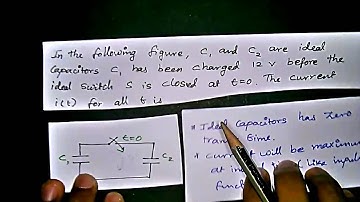 In the following figure, C1 and C2 are ideal
capacitors C1 has been charged 12 V before the
ideal switch S is closed at t=0. The current
i(t) for all t is
t=0
C1
C2
* Ideal Capacitors has zero
time.
* Current will be maximum
at (like